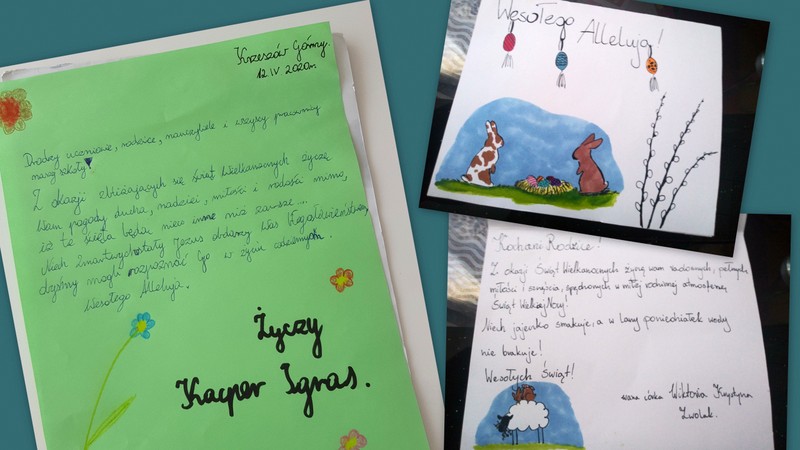 Krzeszów Górny
12.IV.2020r.
Drodzy uczniowie, rodzice, nauczyciele i wszyscy pracownicy
naszej szkoły!
Z okazji zbliżających się świąt Wielkanocnych życzę
Wam pogody ducha, nadziei, miłości i radości mimo,
iż te święta będą nieco inne niż zawsze...
Niech Zmartwychwstały Jezus obdarzy Was błogosławieństwem,
abyśmy mogli rozpoznać Go w życiu codziennym.
Wesołego Alleluja.
Życzy
Kacper Igras.
Wesołego Alleluja!
Kochani Rodzice!
Z okazji Świąt Wielkanocnych życzę wam radosnych, pełnych
miłości i szczęścia, spędzonych w miłej rodzinnej atmosferze
Świąt Wielkiej Nocy!
Niech jajeczko smakuje, a w lany poniedziałek wody
nie brakuje!
Wesołych Świąt!
wasza córka Wiktoria Krystyna
Zwolak.